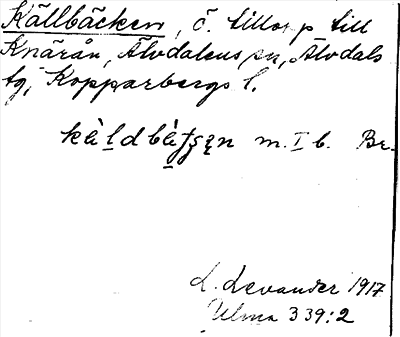 Källbäcken, č. tillopp till
Knärån, Älvdalens sn, Älvdals
tg, Kopparbergs l.
kè̀ldbètʃʂn m. I b. Br.
L. Levander 1917
Ulma 339:2